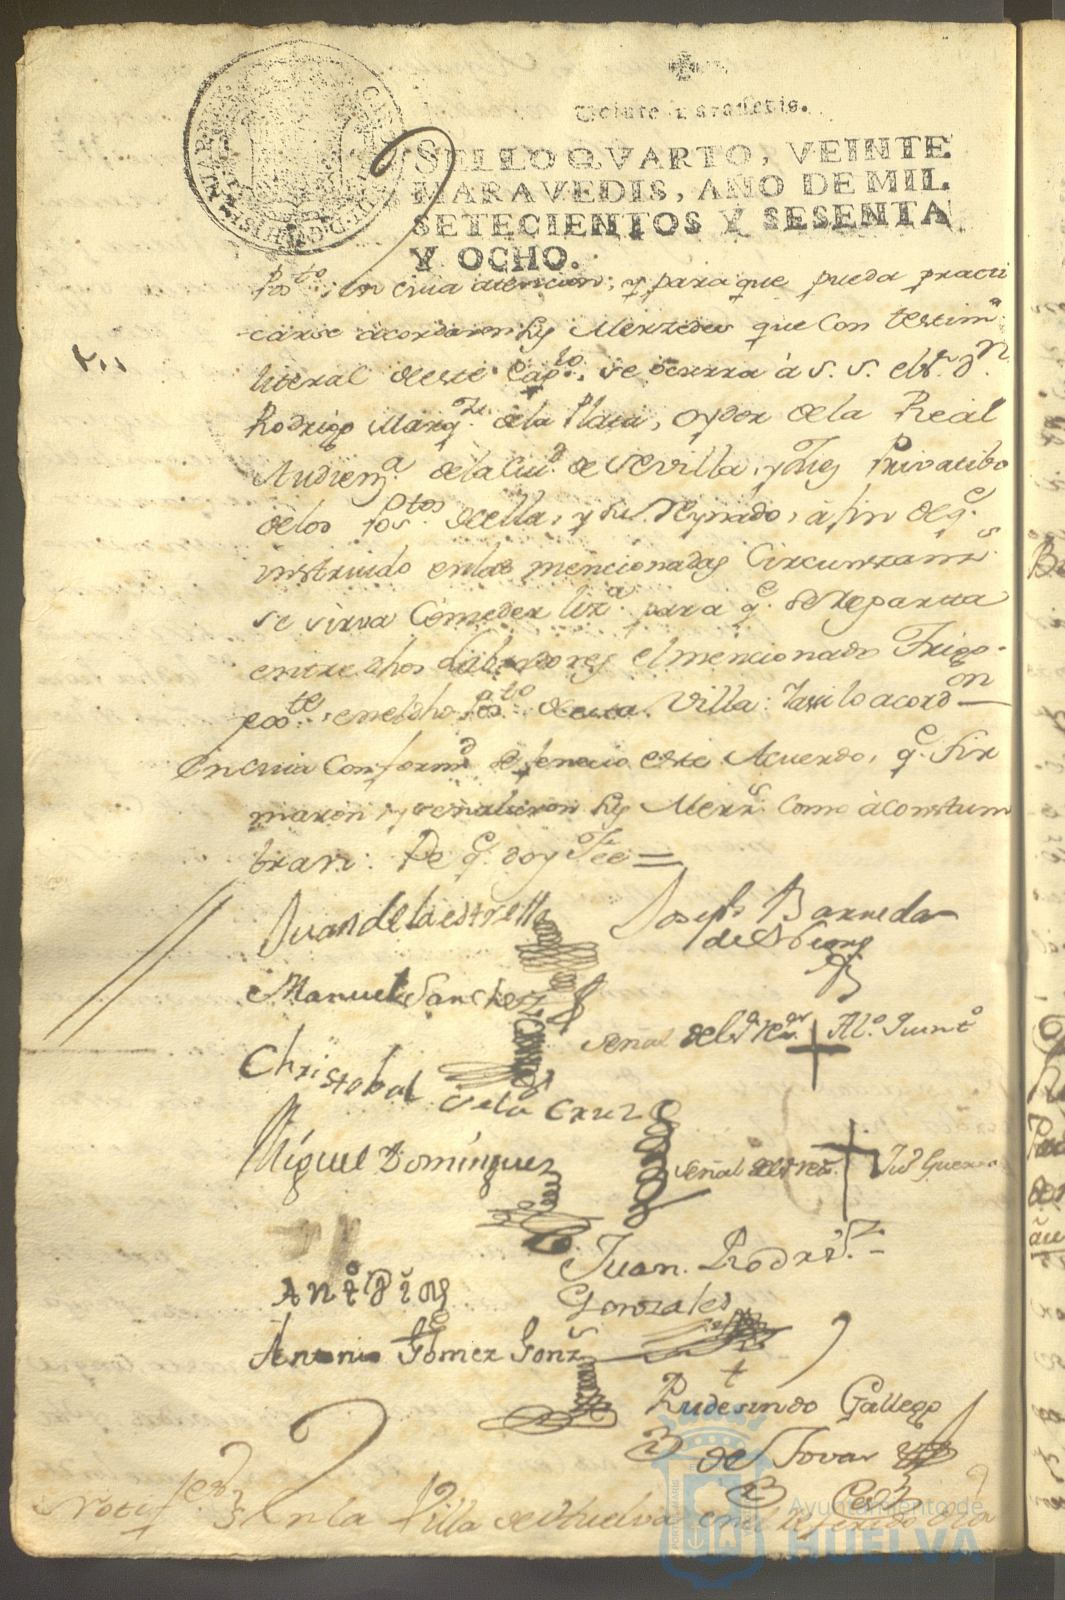 Veinte maravedis.
SELLO QVARTO, VEINTE
MARAVEDIS, AÑO DE MIL
SETECIENTOS Y SESENTA
Y OCHO.
Posto; en cuia atencion, y para que pueda practi
carse acordaron sus Merzedes que Con testimo
literal de este Capto. se ocurra á S. S. el Sr. Dn
Rodrigo Marqz. de la Plata, oydor de la Real
Audienza. de la Ciud. de Sevilla, y Juez Privatibo
de los Postos. de ella, y su Reynado, a fin de q.e
instruido en las mencionadas Circunstans
se sirva Comzeder liza. para q.e se reparta
entre dhos labradores el mencionado Trigo
exte. en el dho Posto. de esta Villa: Y assi lo acordon
En cuia Conformd. se fenecio este Acuerdo, q.e fir
maron, y señalaron sus Merzs. Como acostum
bran: De q.e doy fee =
Juan de la estrella
Joseph Barreda
de
Manuel Sanchez
señal del Sr. Rexor. + Alo. Juin to
Christobal de la Cruz
Miguel Dominguez
señal del Sr. Rexr. + Jud Guerra
Juan. Rodrig.z
Gonzales
Anto Dias
Antonio Gomez Gonz
Rudesindo Gallego
de Tovar
Esno
Noti En la Villa de Huelva en el referido dia
Ayuntamiento de
HUELVA